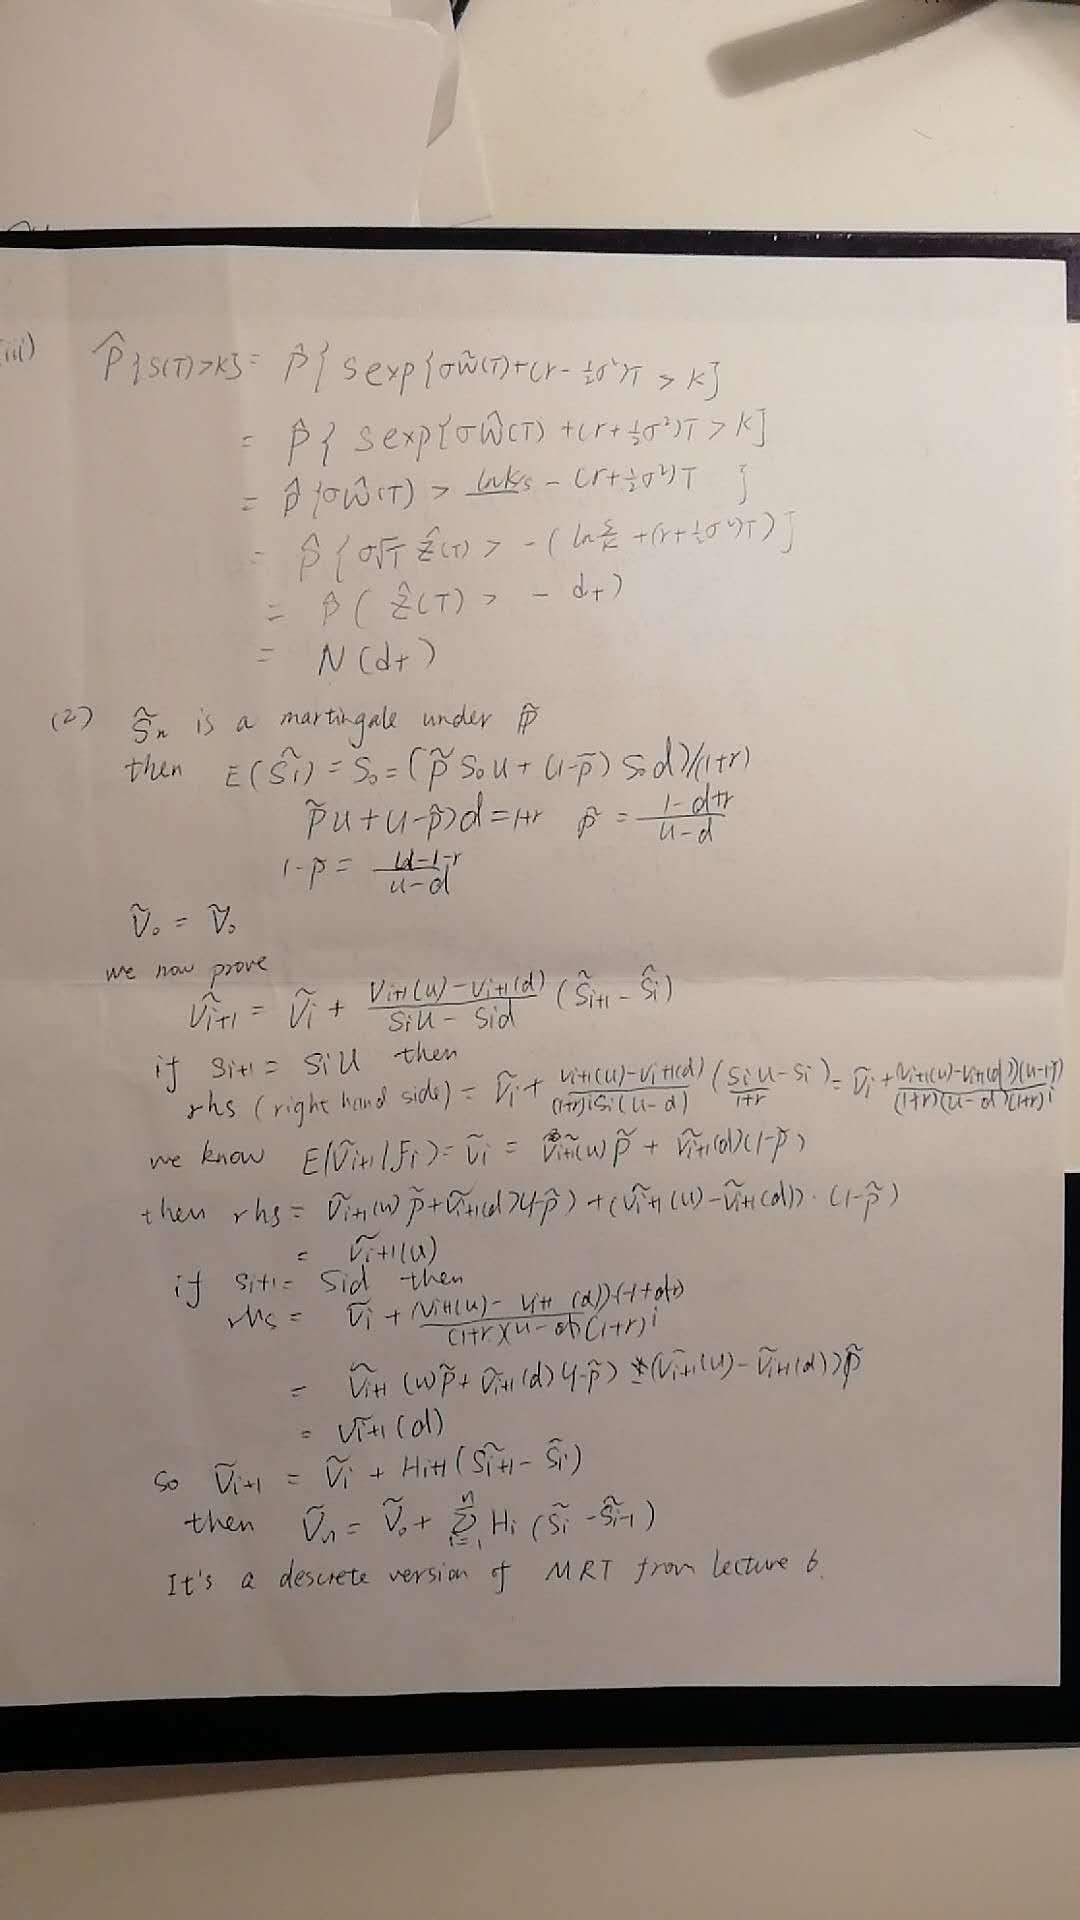 (iii) P̂{S(T)>K} = P̂{ S exp{σW̃(T)+(r-½σ²)T > K}
= P̂{ S exp{σŴ(T) +(r+½σ²)T > K}
= P̂{σŴ(T) > ln K/S - (r+½σ²)T }
= P̂{ σ√T Ẑ(T) > -( ln S/K +(r+½σ²)T)}
= P̂( Ẑ(T) > - d+)
= N(d+)
(2) S̃n is a martingale under P̃
then E(S̃1) = S0 = (p̃ S0 u + (1-p̃) S0 d)/(1+r)
p̃u + (1-p̃)d = 1+r p̃ = (1-d+r)/(u-d)
1-p̃ = (u-1-r)/(u-d)
Ṽ0 = Ṽ0
we now prove
Ṽi+1 = Ṽi + (Vi+1(u) - Vi+1(d))/(Siu - Sid) (S̃i+1 - S̃i)
if Si+1 = Siu then
rhs (right hand side) = Ṽi + (Vi+1(u)-Vi+1(d))/((1+r)^i Si(u-d)) (Siu/(1+r) - Si) = Ṽi + (Vi+1(u)-Vi+1(d))(u-1-r)/((1+r)(u-d)(1+r)^i)
we know E(Ṽi+1|Fi) = Ṽi = Ṽi+1(u)p̃ + Ṽi+1(d)(1-p̃)
then rhs = Ṽi+1(u)p̃+Ṽi+1(d)(1-p̃) + (Ṽi+1(u)-Ṽi+1(d)) · (1-p̃)
= Ṽi+1(u)
if Si+1 = Sid then
rhs = Ṽi + (Vi+1(u) - Vi+1(d))(-1+d-r)/((1+r)(u-d)(1+r)^i)
= Ṽi+1(u)p̃+Ṽi+1(d)(1-p̃) - (Ṽi+1(u)-Ṽi+1(d))p̃
= Ṽi+1(d)
So Ṽi+1 = Ṽi + Hi+1(S̃i+1 - S̃i)
then Ṽn = Ṽ0 + Σ_{i=1}^{n} Hi (S̃i - S̃i-1)
It's a descrete version of MRT from lecture 6.